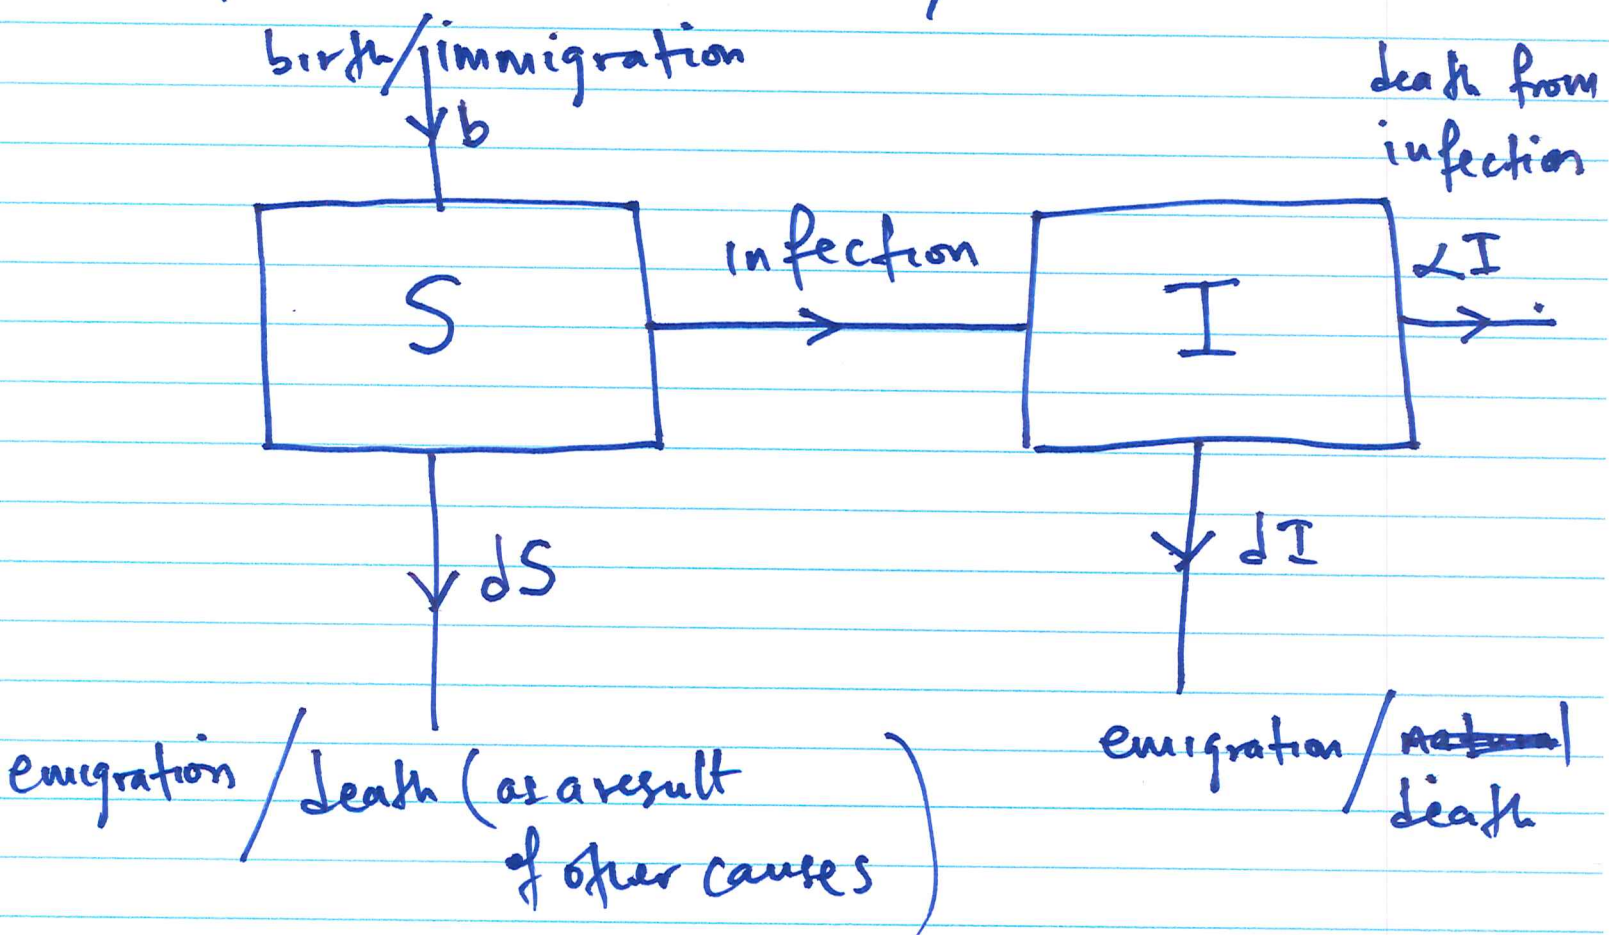 birth/immigration
b
death from
infection
S
infection
I
αI
dS
dI
emigration / death (as a result
of other causes)
emigration / death